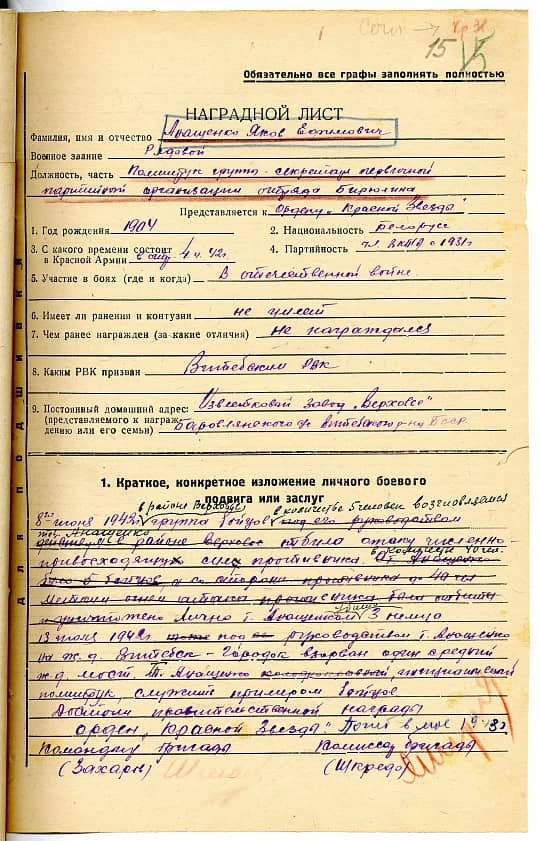 15
Обязательно все графы заполнять полностью
НАГРАДНОЙ ЛИСТ
Фамилия, имя и отчество Анащенко Яков Ефимович
Военное звание Рядовой
Должность, часть Политрук группы - секретарь первичной
партийной организации отряда Бирюлина
Представляется к Ордену "Красной Звезды"
1. Год рождения 1904 2. Национальность белорус
3. С какого времени состоит в Красной Армии 42г. 4. Партийность чл. ВКПб с 1931г.
5. Участие в боях (где и когда) В отечественной войне
6. Имеет ли ранения и контузии не имеет
7. Чем ранее награжден (за какие отличия) не награждался
8. Каким РВК призван Витебским РВК
9. Постоянный домашний адрес: Известковый завод "Верховье"
(представляемого к награждению или его семьи) Витебского р-на БССР
1. Краткое, конкретное изложение личного боевого
подвига или заслуг
в районе Верховье в количестве 5 человек возглавляемая
8го июня 1942г. группа бойцов под его руководством
тов. Анащенко
в районе Верховье отбила атаку численно-
превосходящих сил противника. в количестве 40 чел.
бойцов, а со стороны противника до 40 чел
атака противника была отбита
и уничтожено лично т. Анащенко 3 немца
13 июня 1942г. под руководством т. Анащенко
на ж.д. Витебск - Городок взорван один средний
ж.д. мост. Т. Анащенко
политрук, служит примером бойцов
Достоин правительственной награды
орден "Красной Звезды". Погиб в мае 1943г
Командир бригады Комиссар бригады
(Захаров) (Шкредо)
для подшивки